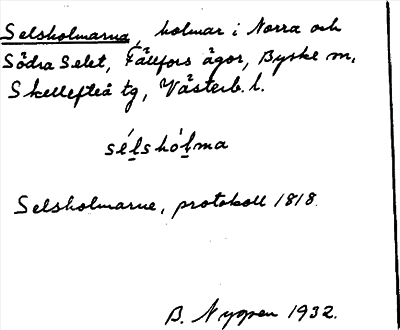 Selsholmarna, holmar i Norra och
Södra Selet, Fällfors ägor, Byske sn,
Skellefteå tg, Västerb. l.
sélshól̥ma
Selsholmarne, protokoll 1818.
B. Nygren 1932.